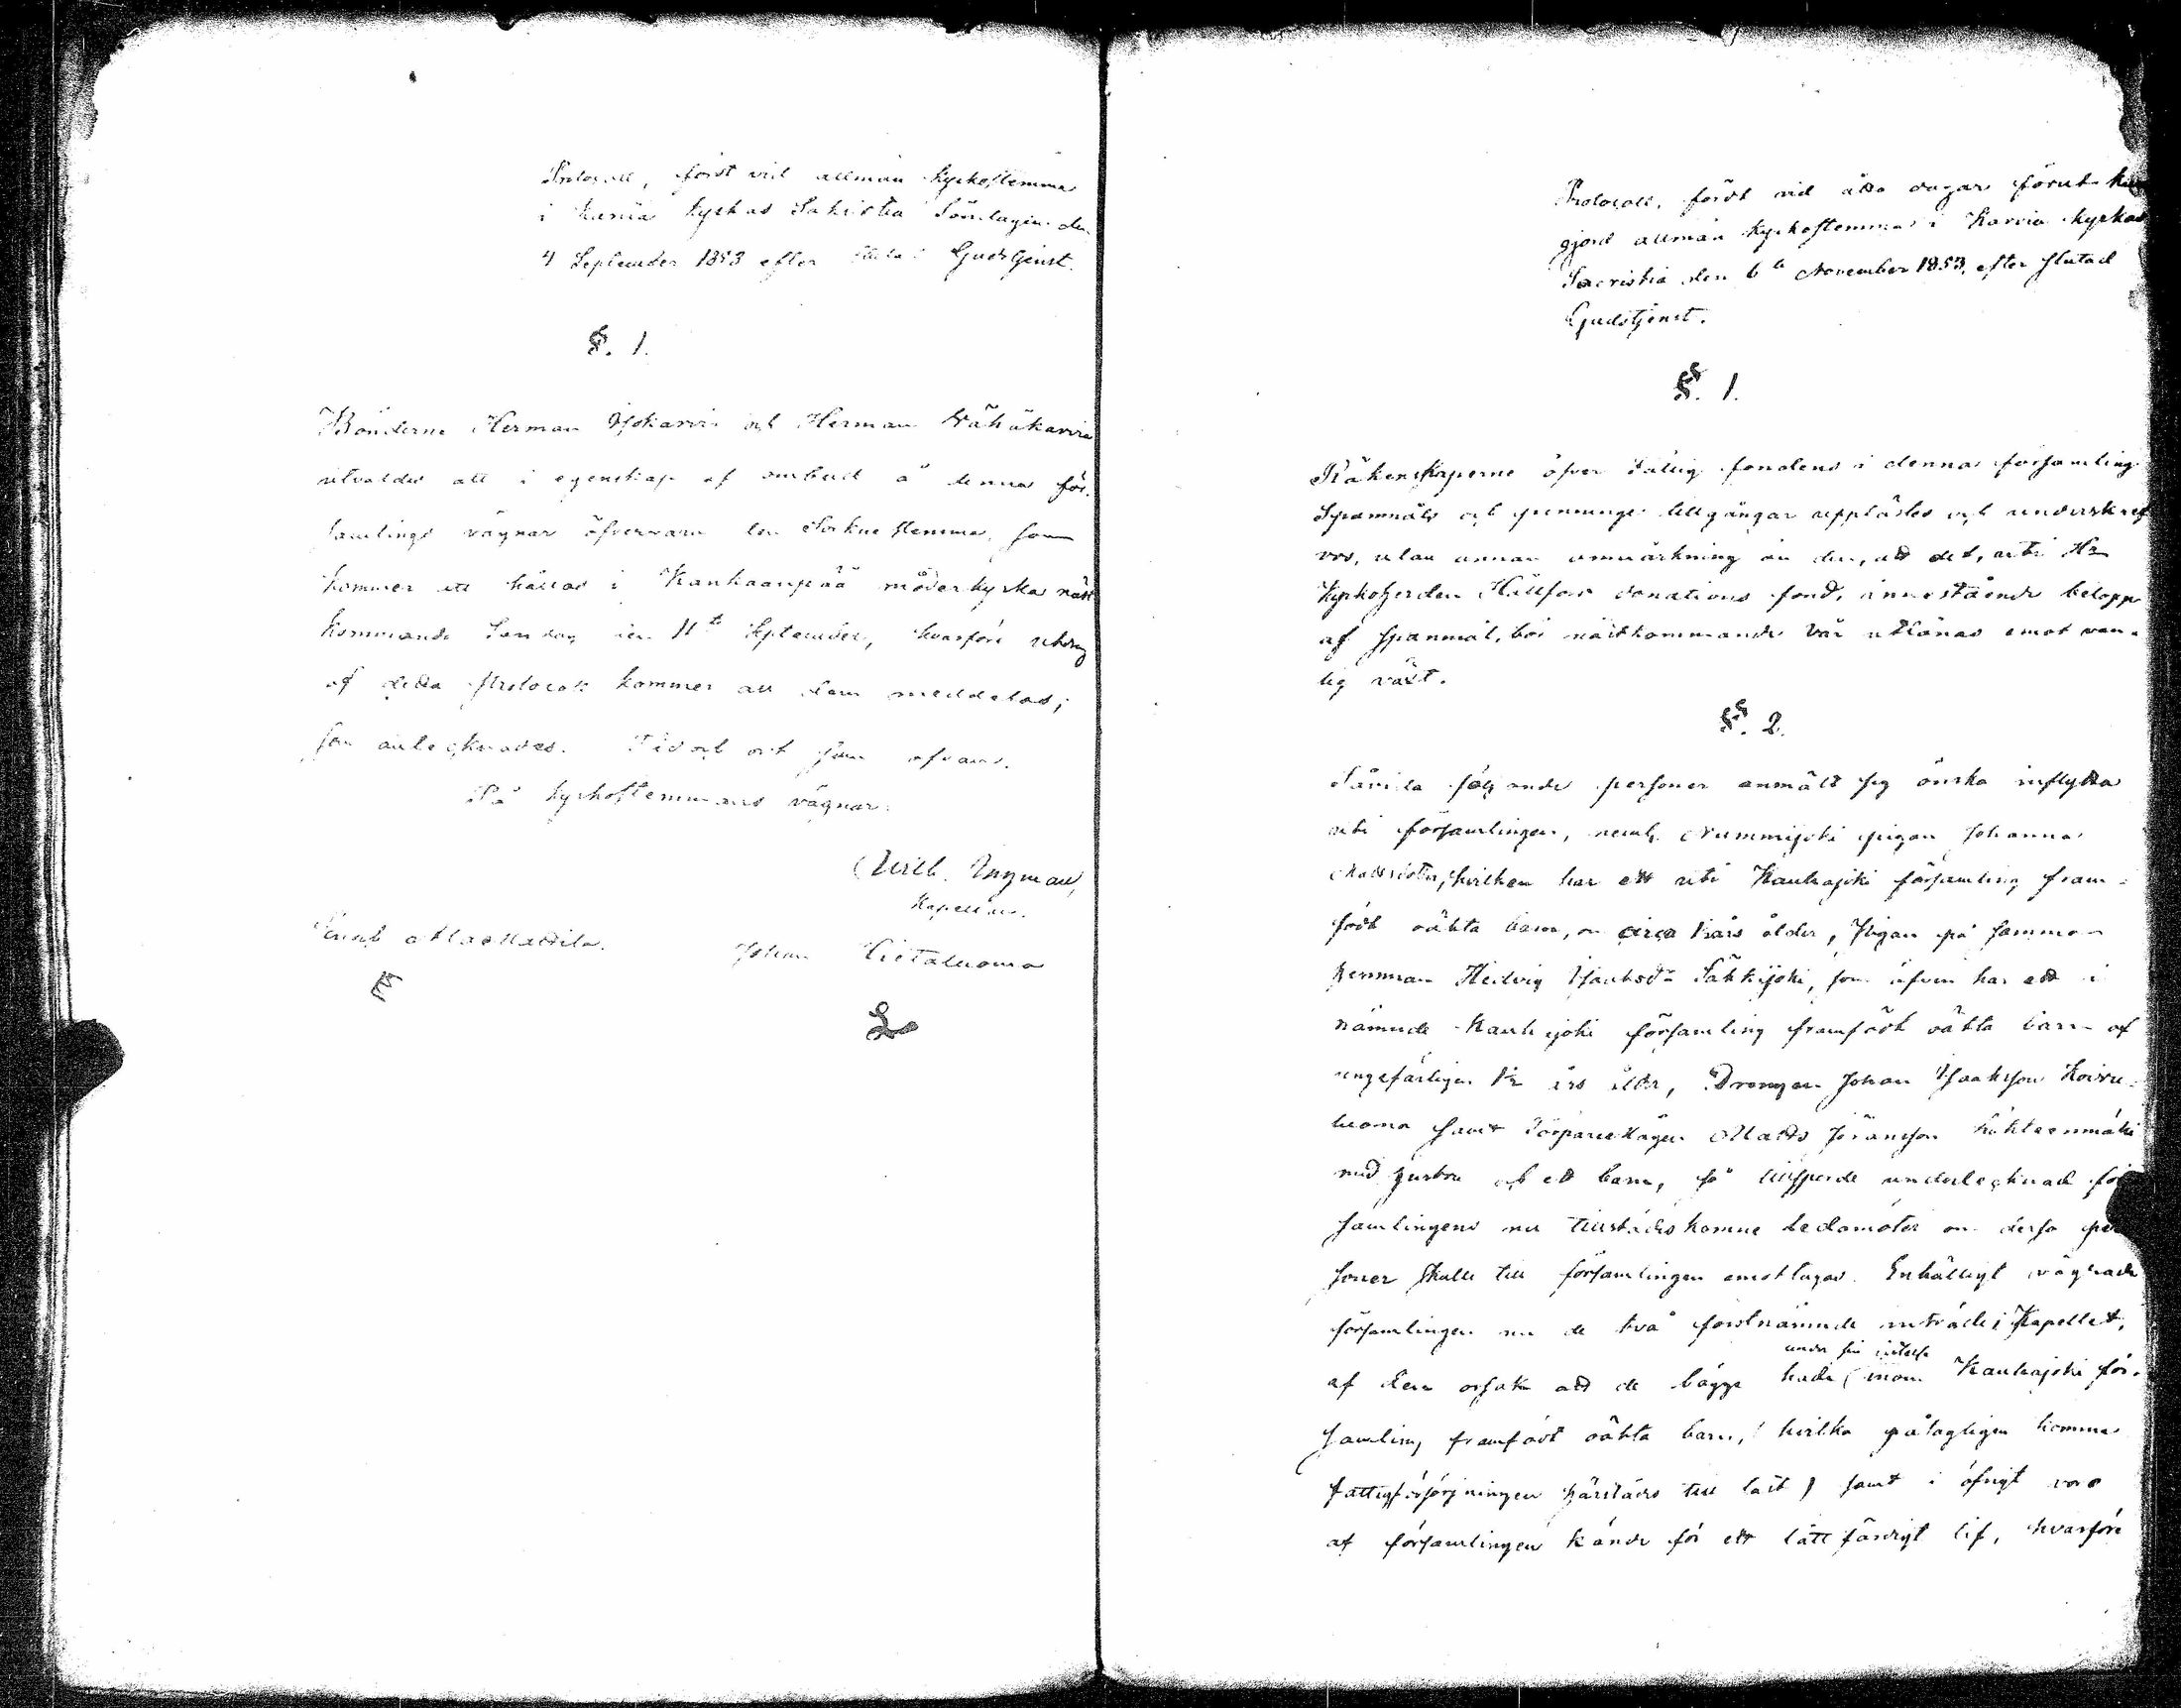 Protocoll, fördt vid allmän kyrkostemma
i Karvia kyrkas Sakristia Söndagen den
4 September 1853 efter slutad Gudstjenst.
§. 1.
Bönderne Herman Yskarvia och Herman Vähäkarvia
utvaldes att i egenskap af ombud å denna för-
samlings vägnar öfvervara den Sockne stemma, som
kommer att hållas i Kankaanpää moderkyrka näst
kommande Söndag den 11te September, hvarföre utdrag
af detta protocoll kommer att dem meddelas;
som antecknades. Tid och ort som ofvan.
På kyrkostemmans vägnar:
Wilh. Ingman,
Kapellan.
Jacob Ala Mattila. Johan Hietaluoma
Protocoll, fördt vid åtta dagar förut kun
gjord allmän kyrkostemma i Karvia kyrkas
Sacristia den 6te November 1853, efter slutad
Gudstjenst.
§. 1.
Räkenskaperne öfver Fattig fondens i denna församling
Spannmåls och pennings tillgångar upplästes och underskref
vos, utan annan anmärkning än den, att det, uti Hr
Kyrkoherden Hällfors donations fond, innestående belopp
af spanmål, bör nästkommande vår utlånas emot van-
lig växt.
§. 2.
Såvida följande personer anmält sig önska inflytta
uti församlingen, neml. Nummijoki pigan Johanna
Mattsdotter, hvilken har ett uti Kauhajoki församling fram-
födt oäkta barn, om circa 1 års ålder, Pigan på samma
hemman Hedvig Isaksdr Säkkijoki, som äfven har ett i
nämnde Kauhajoki församling framfödt oäkta barn af
ungefärligen 1/2 års ålder, Drängen Johan Isaksson Koivu-
luoma samt Torparedrängen Matts Jöransson Kähteenmäki
med hustru och ett barn, så tillsporde undertecknad för
samlingens nu tillstädeskomne ledamöter om dessa per
soner skulle till församlingen emottagas. Enhälligt vägrade
församlingen nu de två förstnämnde inträde i Kapellet,
af den orsak att de bägge hade under sin vistelse inom Kauhajoki för-
samling framfödt oäkta barn, (hvilka påtagligen komme
fattigförsörjningen härstädes till last) samt i öfrigt voro
af församlingen kände för ett lättfärdigt lif, hvarföre